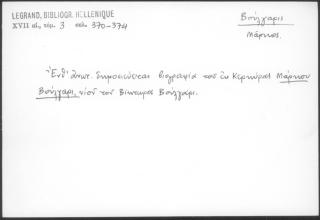 LEGRAND, BIBLIOGR. HELLENIQUE
XVII αἰ., τόμ. 3 σελ. 370-374
Βούλγαρις
Μάρκος.
Ἔνθ' ἀνωτ. δημοσιεύεται βιογραφία τοῦ ἐκ Κερκύρας Μάρκου
Βούλγαρι, υἱοῦ τοῦ Βίκτωρος Βούλγαρι.